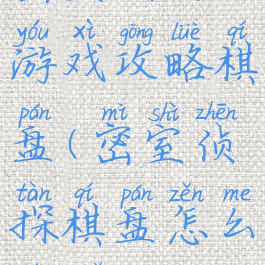 yóu xì gōng lüè qí
游戏攻略棋
pán mì shì zhēn
盘(密室侦
tàn qí pán zěn me
探棋盘怎么